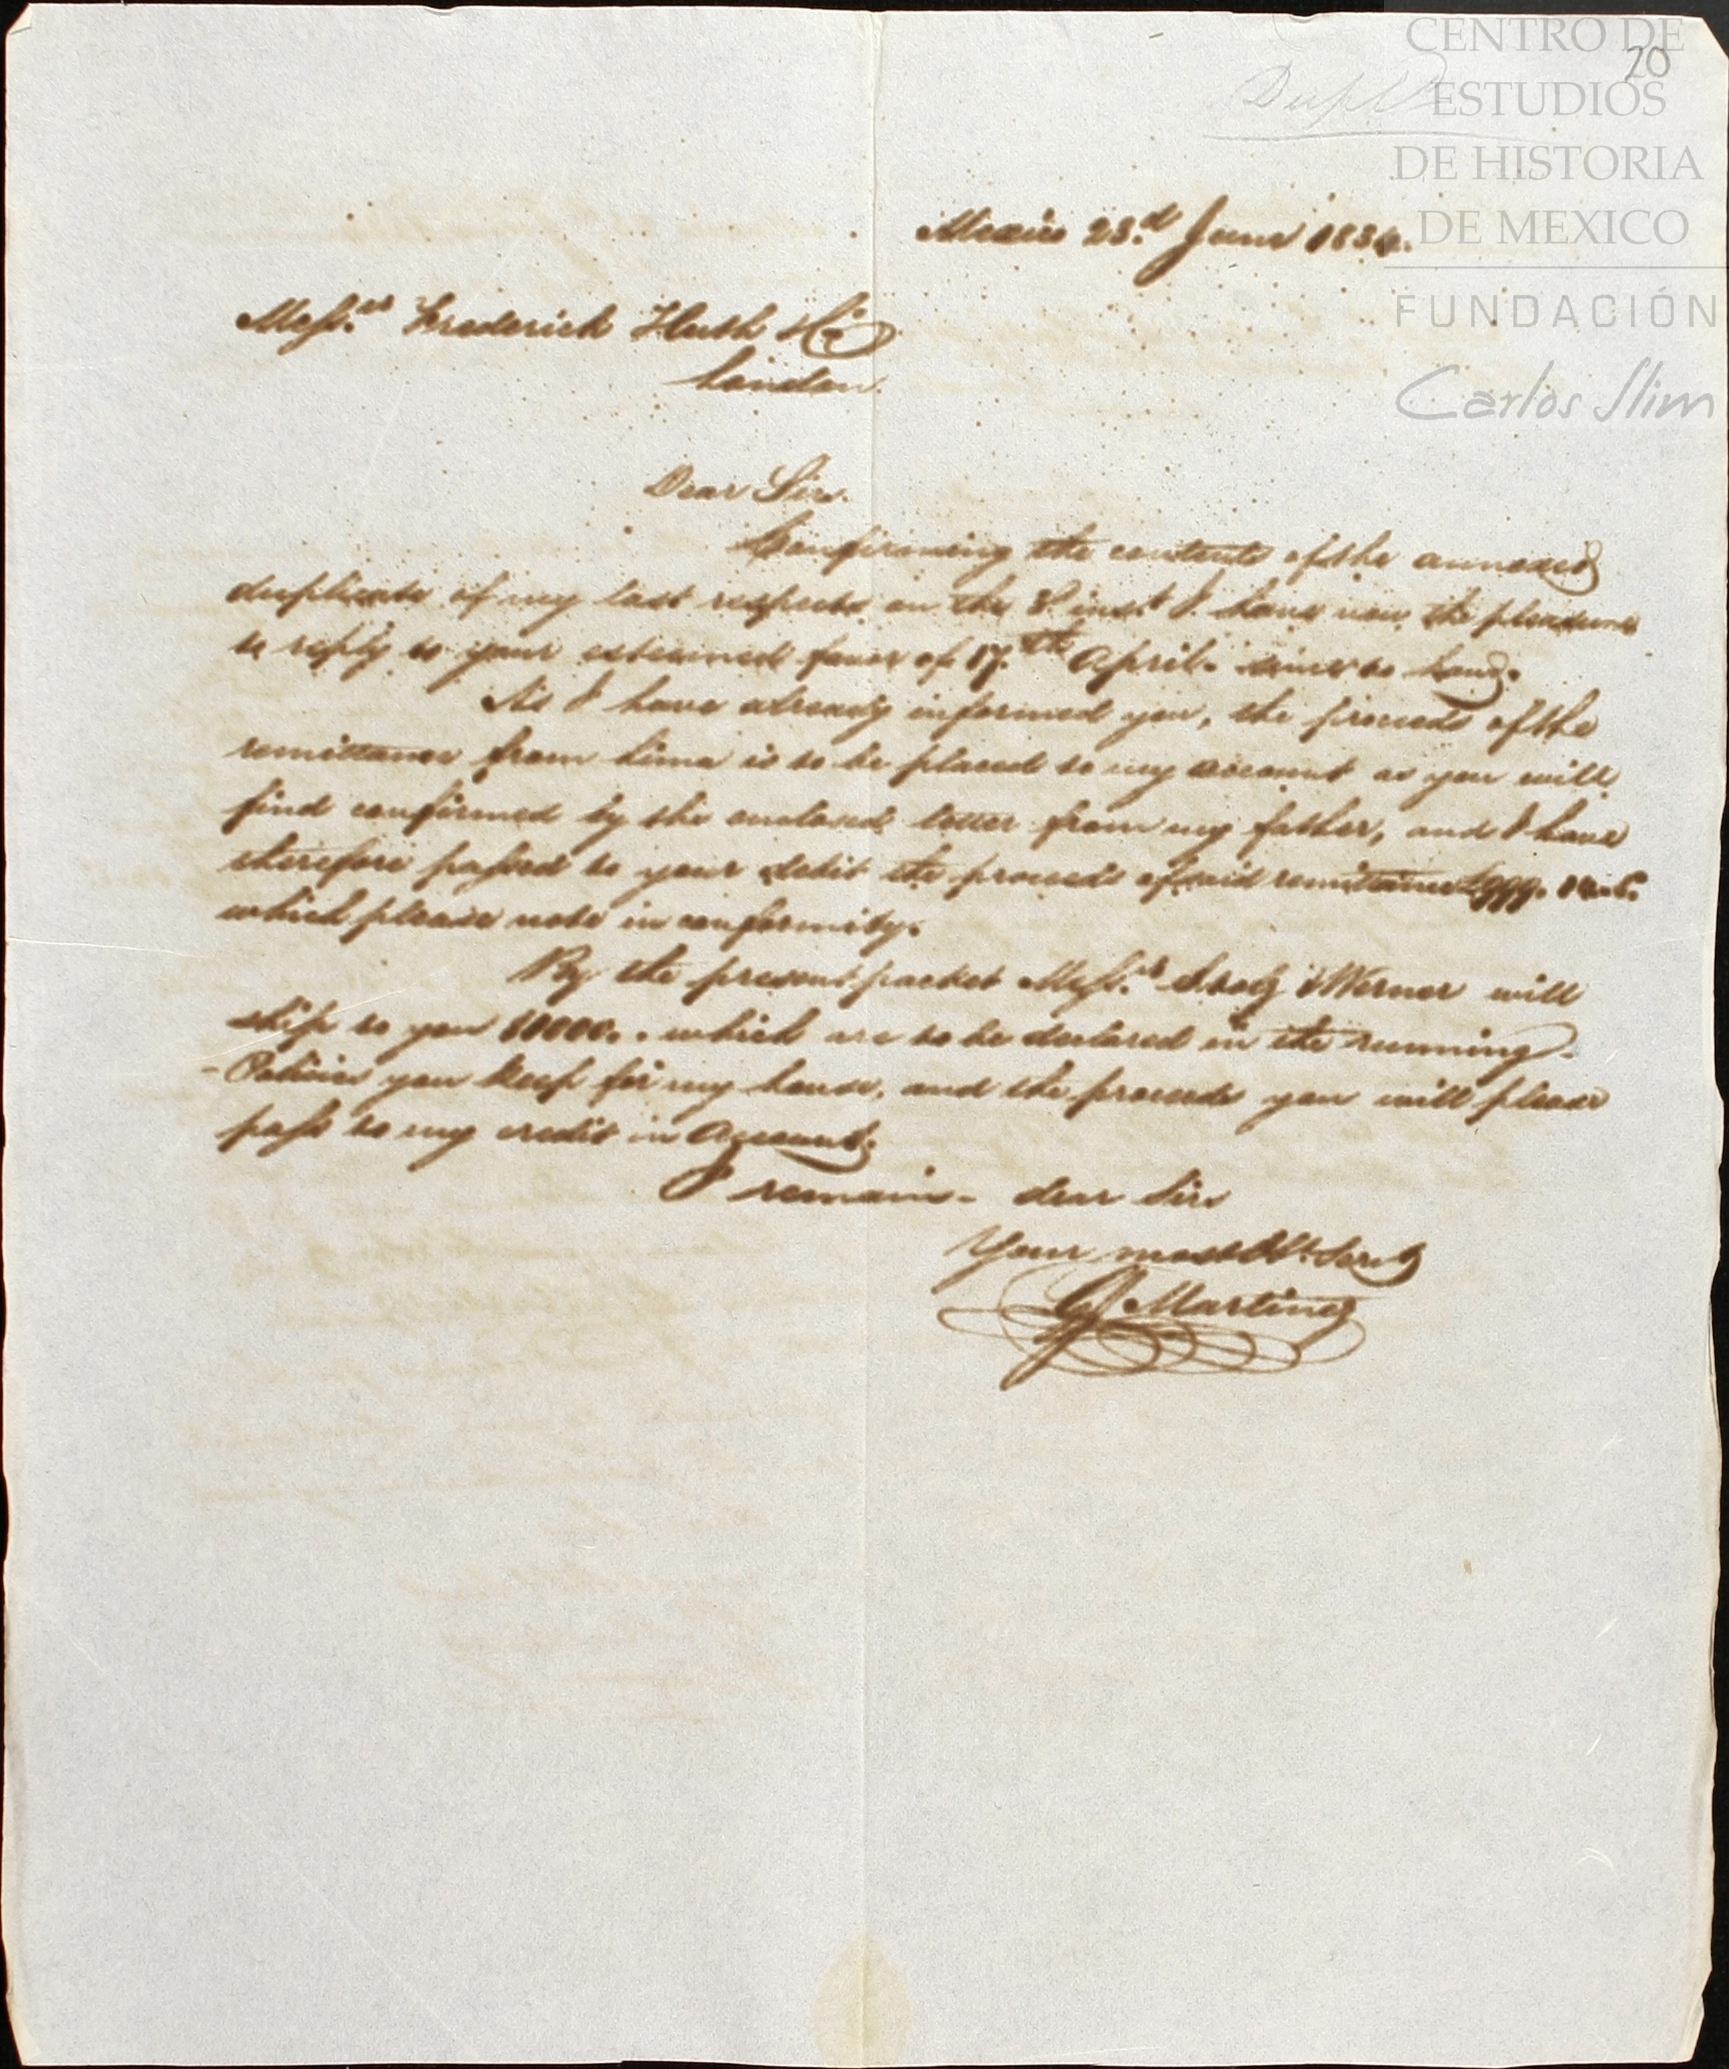 CENTRO DE
ESTUDIOS
DE HISTORIA
DE MEXICO
FUNDACIÓN
Carlos Slim
70
Dupl
Mexico 23.d June 1834.
Mess.rs Frederick Huth & Co
London.
Dear Sirs.
Confirming the contents of the annexed
duplicate of my last respects on the inst I have now the pleasure
to reply to your esteemed favor of 17.th April. since to hand.
As I have already informed you, the proceeds of the
remittance from Lima is to be placed to my account as you will
find confirmed by the enclosed letter from my father, and I have
therefore passed to your debit the proceeds of said remittance
which please note in conformity.
By the present packet Mess.rs & Werner will
ship to you which are to be declared in the running
Policies you keep for my house, and the proceeds you will please
pass to my credit in Account.
I remain - dear Sirs
Your most Ob.t Serv.t
Martinez